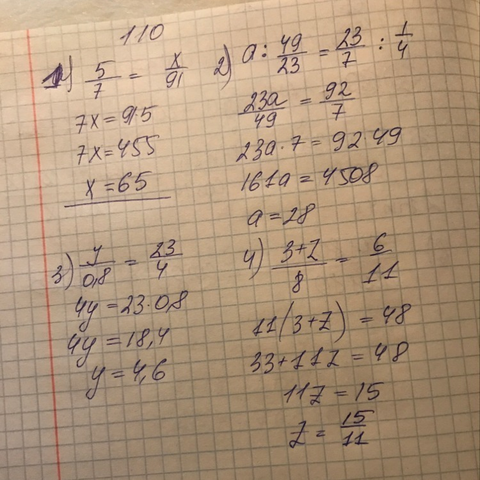 110
1) 5/7 = x/91
7x = 91·5
7x = 455
x = 65
2) a : 49/23 = 23/7 : 1/4
23a/49 = 92/7
23a·7 = 92·49
161a = 4508
a = 28
3) y/0,8 = 23/4
4y = 23·0,8
4y = 18,4
y = 4,6
4) 3+z/8 = 6/11
11(3+z) = 48
33+11z = 48
11z = 15
z = 15/11